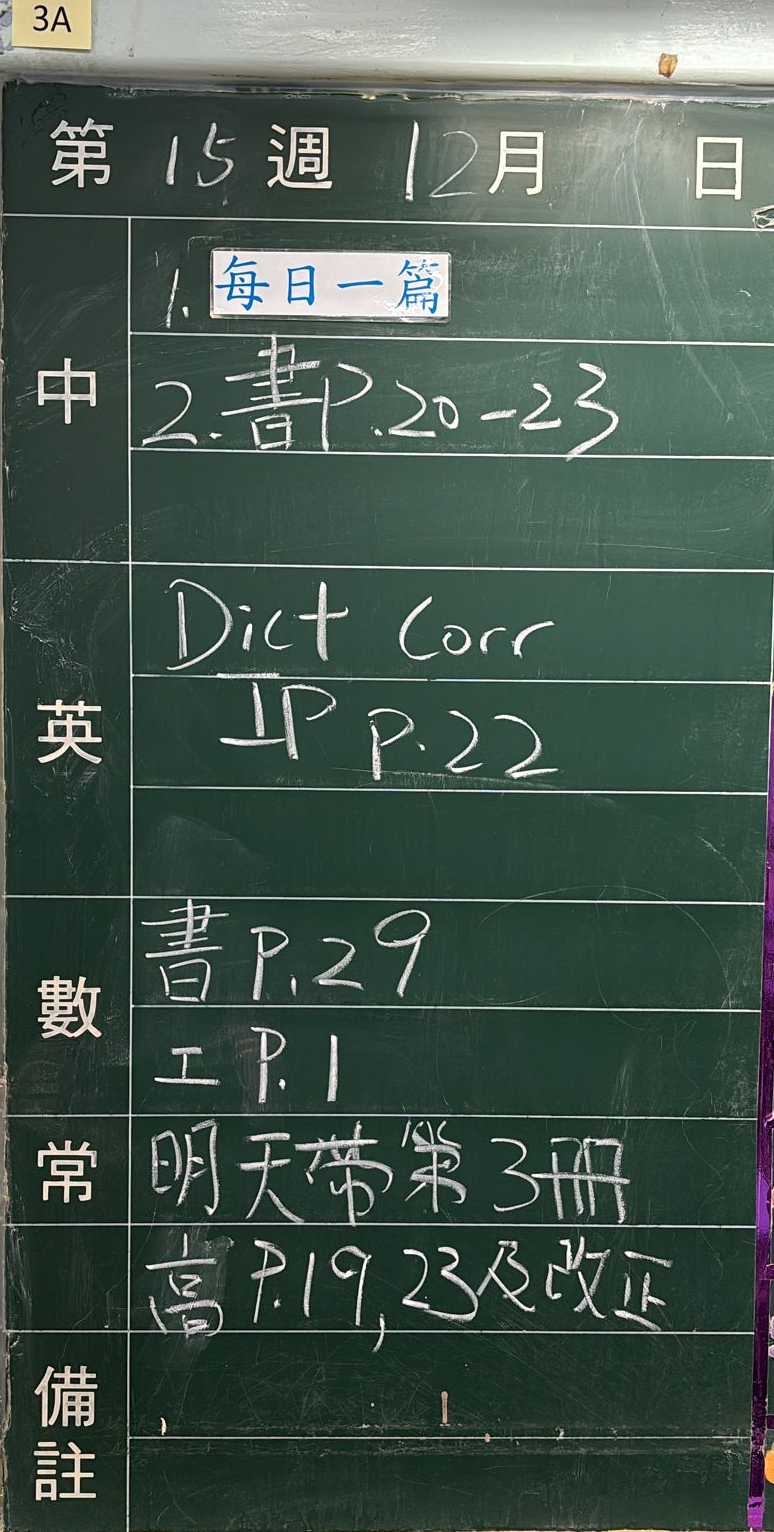 3A
第 15 週 12 月 日
中
1. 每日一篇
2. 書P.20-23
英
Dict Corr
IP P.22
數
書 P.29
工 P.1
常
明天帶第3冊
高 P.19, 23及改正
備註